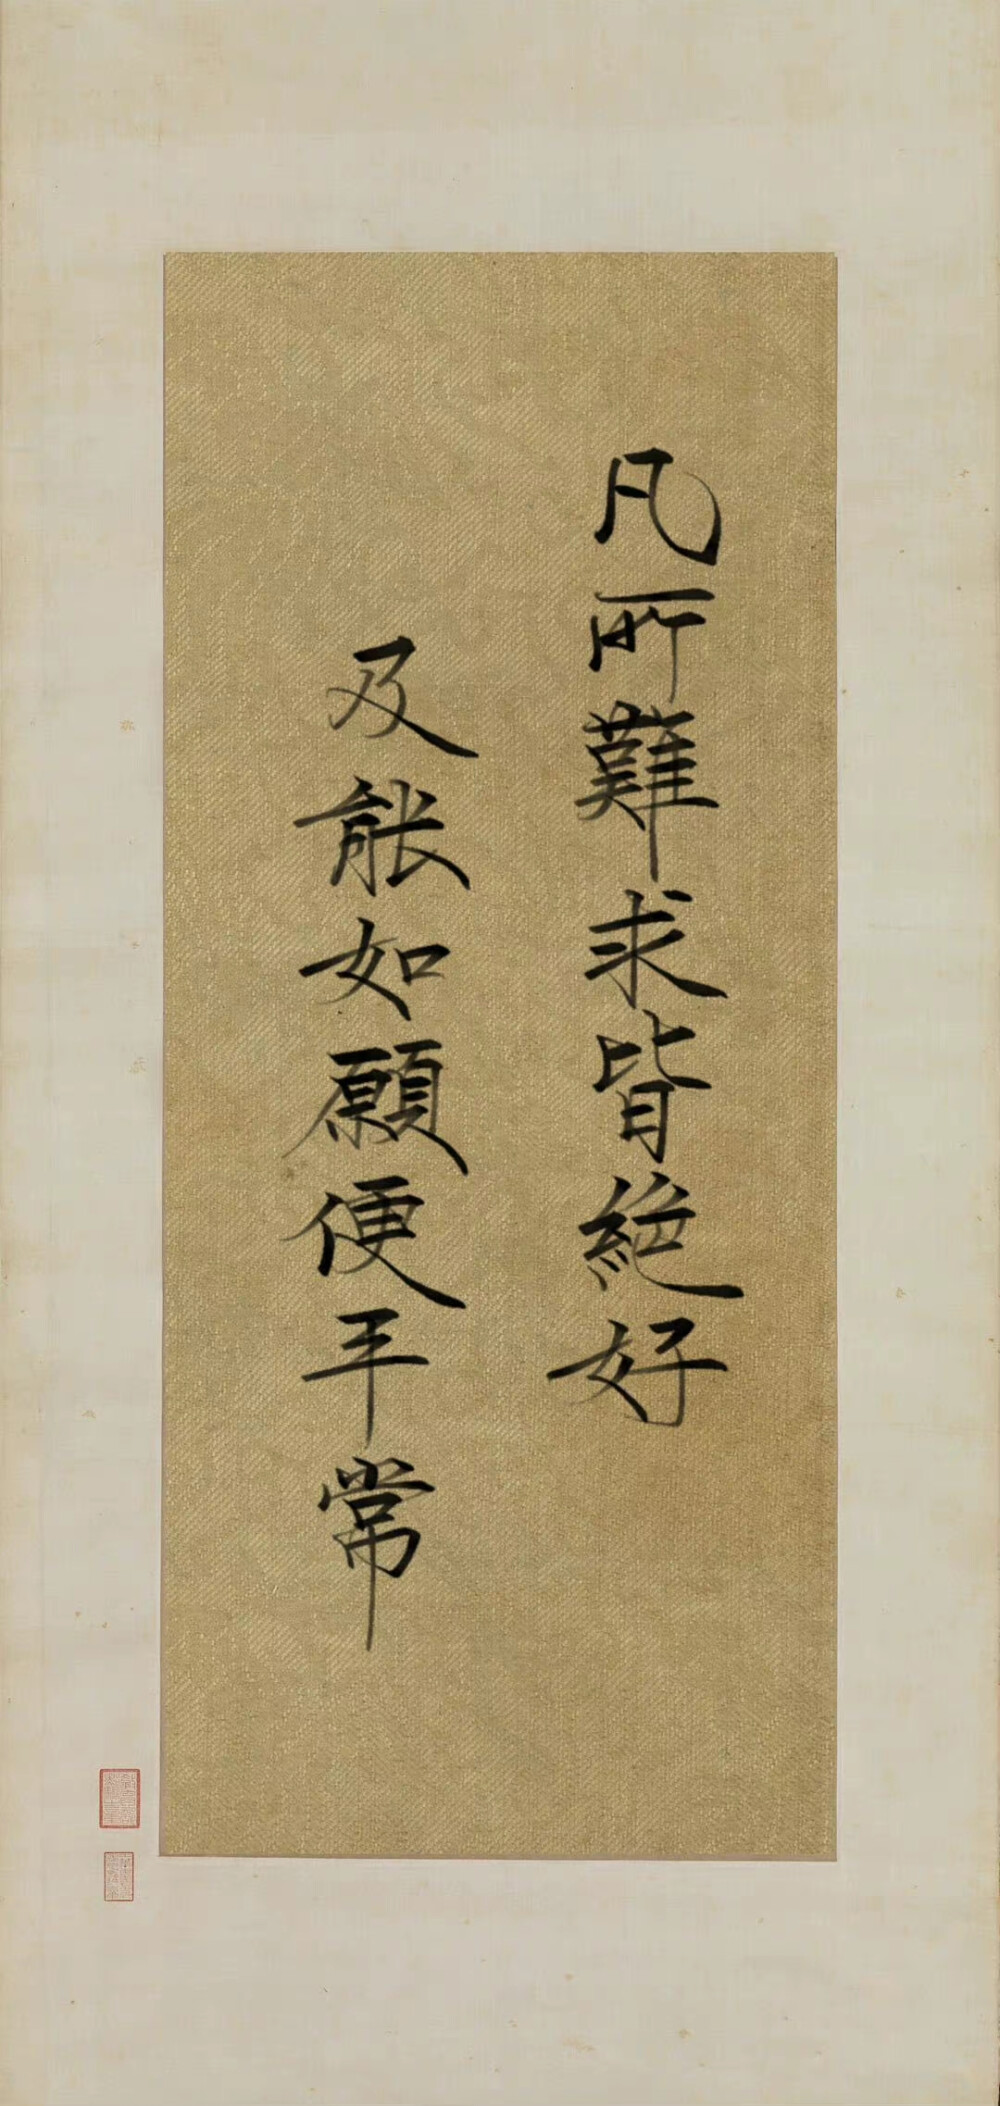 凡所難求皆絕好
及能如願便平常